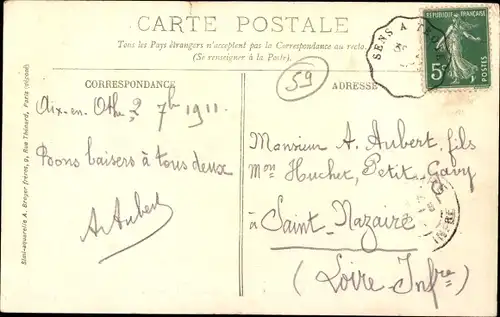 CARTE POSTALE
Tous les Pays étrangers n'acceptent pas la Correspondance au recto.
(Se renseigner à la Poste).
SENS A
RÉPUBLIQUE FRANÇAISE
5c
POSTES
59
CORRESPONDANCE
ADRESSE
Aix-en-Othe 2 7bre 1911.
Bons baisers à tous deux
A. Aubert
Monsieur A. Aubert, fils
Mon Huchet, Petit Gavy
à Saint-Nazaire
(Loire Infre)
INFRE
A. Breger frères, 9, Rue Thénard, Paris